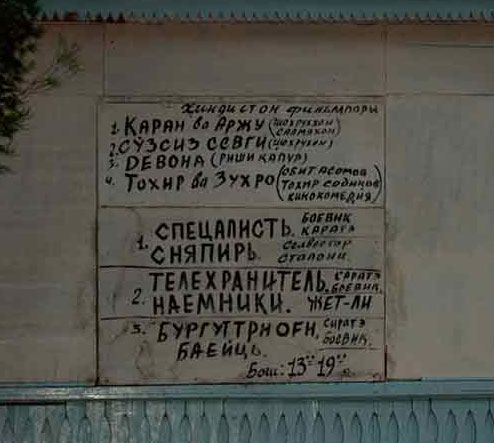 Хиндистон филмлари
1. Каран ва Аржу (Шохрухон
Салмахон)
2. Сўзсиз севги (Шохрухон)
3. Девона (Риши Капур)
4. Тохир ва Зухро (Обит Асомов
Тохир Содиков
кинокомедия)
1. Спецалисть. Боевик
каратэ
Сняпирь. Селвестор
Сталони.
2. Телехранитель. каратэ
боевик.
Наемники. Жет-Ли
3. Бургуттри оғи, каратэ
боевик.
Баейць.
Бош: 13⁰⁰ 19⁰⁰